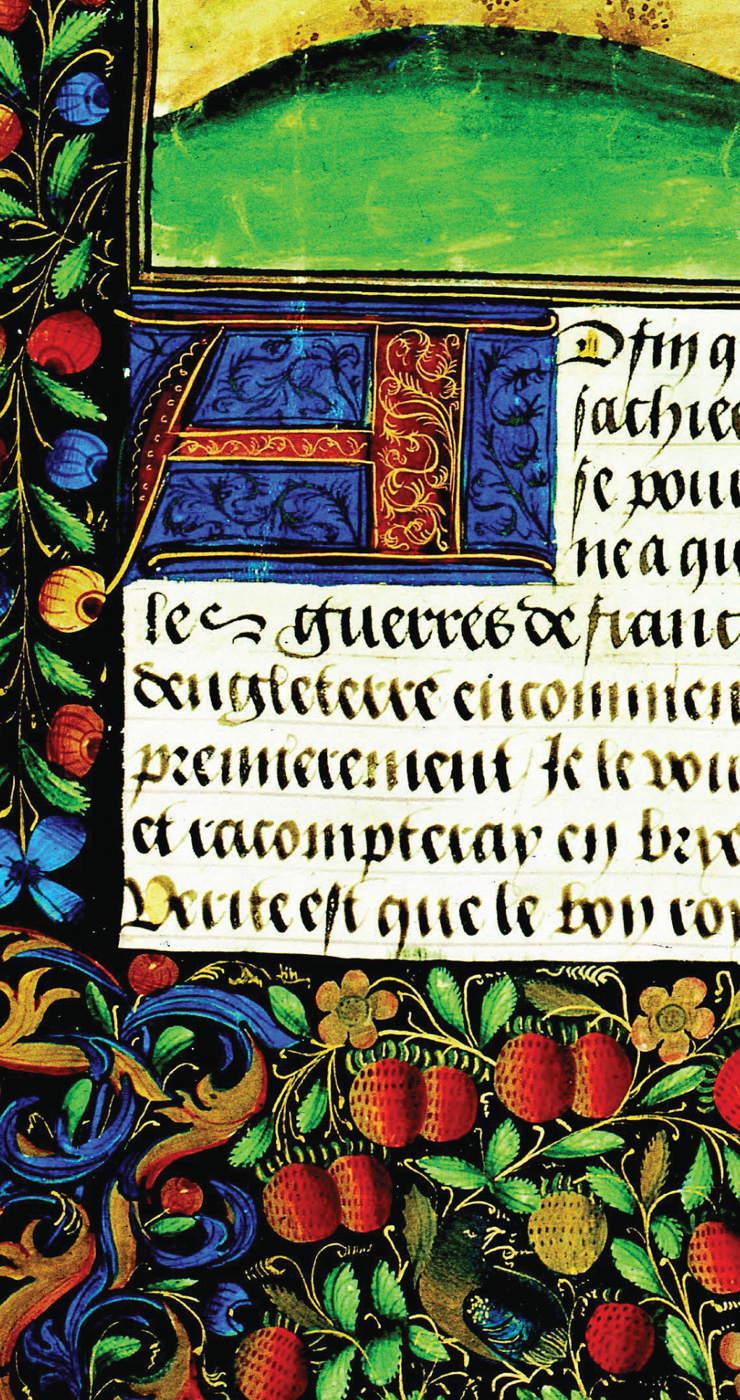 ADfin q
sachiee
se pour
ne a que
les guerres de franc
dengleterre encommen
premierement Je le vou
et racompteray en brye
Verite est que le bon roy